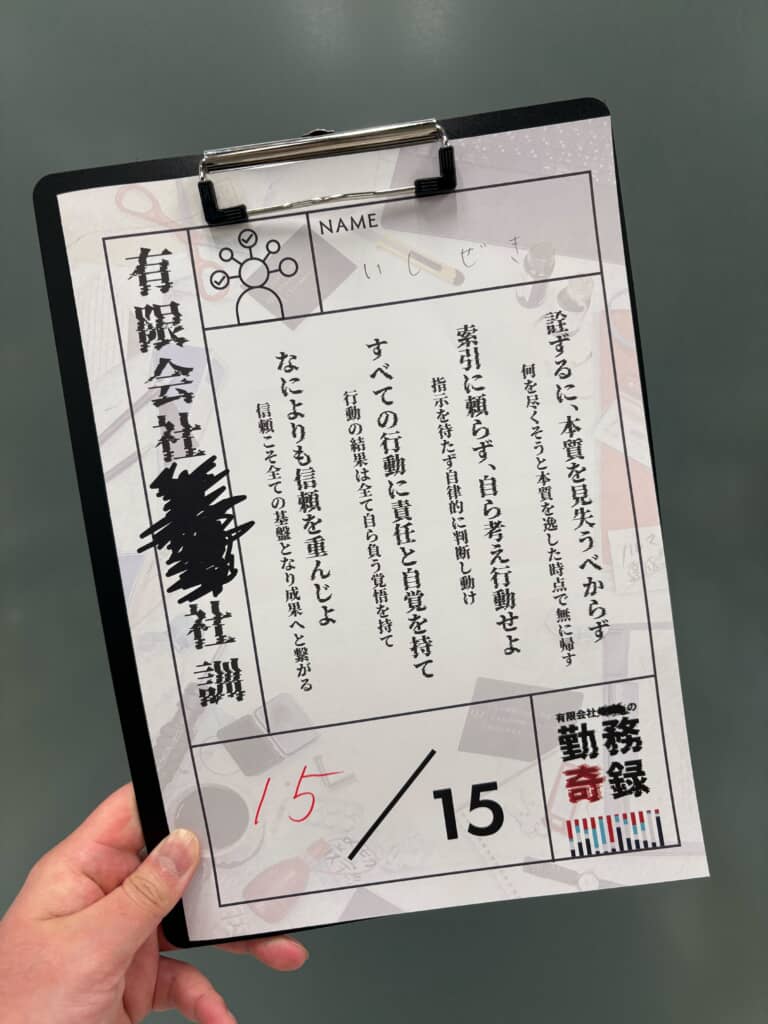 NAME
いしぜき
有限会社
社訓
詮ずるに、本質を見失うべからず
何を尽くそうと本質を逸した時点で無に帰す
索引に頼らず、自ら考え行動せよ
指示を待たず自律的に判断し動け
すべての行動に責任と自覚を持て
行動の結果は全て自ら負う覚悟を持て
なによりも信頼を重んじよ
信頼こそ全ての基盤となり成果へと繋がる
15/15
有限会社
の
勤務
奇録